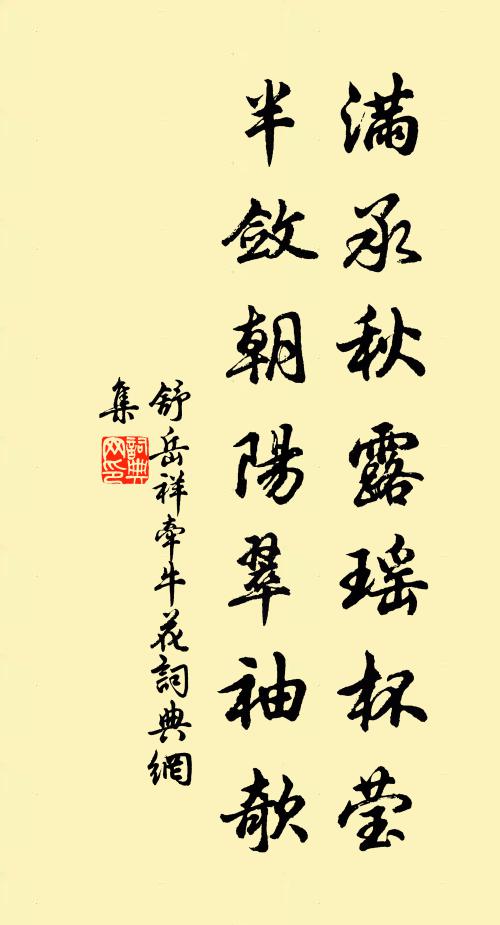 滿承秋露瑶杯莹
半斂朝陽翠袖欹
舒岳祥牽牛花詞典網
集
詞典网印